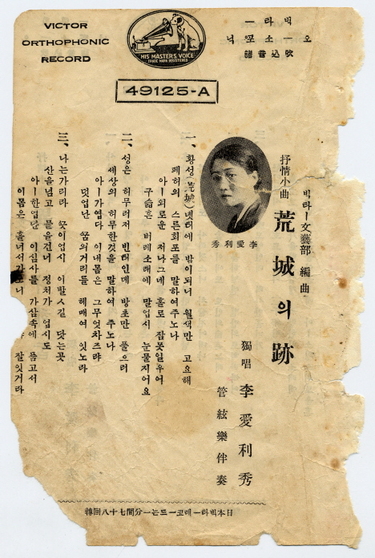 VICTOR
ORTHOPHONIC
RECORD
HIS MASTER'S VOICE
빅타ー
오ー소포닉
49125-A
빅타ー文藝部 編曲
抒情小曲
荒城의跡
李愛利秀
獨唱 李愛利秀
管絃樂伴奏
一、황성(荒城)녯터에 밤이되니 월색만 고요해
폐허의 스른회포를 말하여주노나
아ー외로운 저나그내 홀로 잠못일우어
구슯흔 버레소래에 말업시 눈물지어요
二、성은 허무러저 빈터인데 방초만 풀으러
세상의 허무한것을 말하여 주노나
아ー가엽다 이내몸은 그무엇차즈랴
덧업난 꿈의거리를 헤매여 잇노라
三、나는가리라 끗이업시 이발ㅅ길 닷는곳
산을넘고 물을건너 정처가 업시도
아ー한업난 이심사를 가삼속에 품고서
이몸은 흘너서가노니 잘잇거라